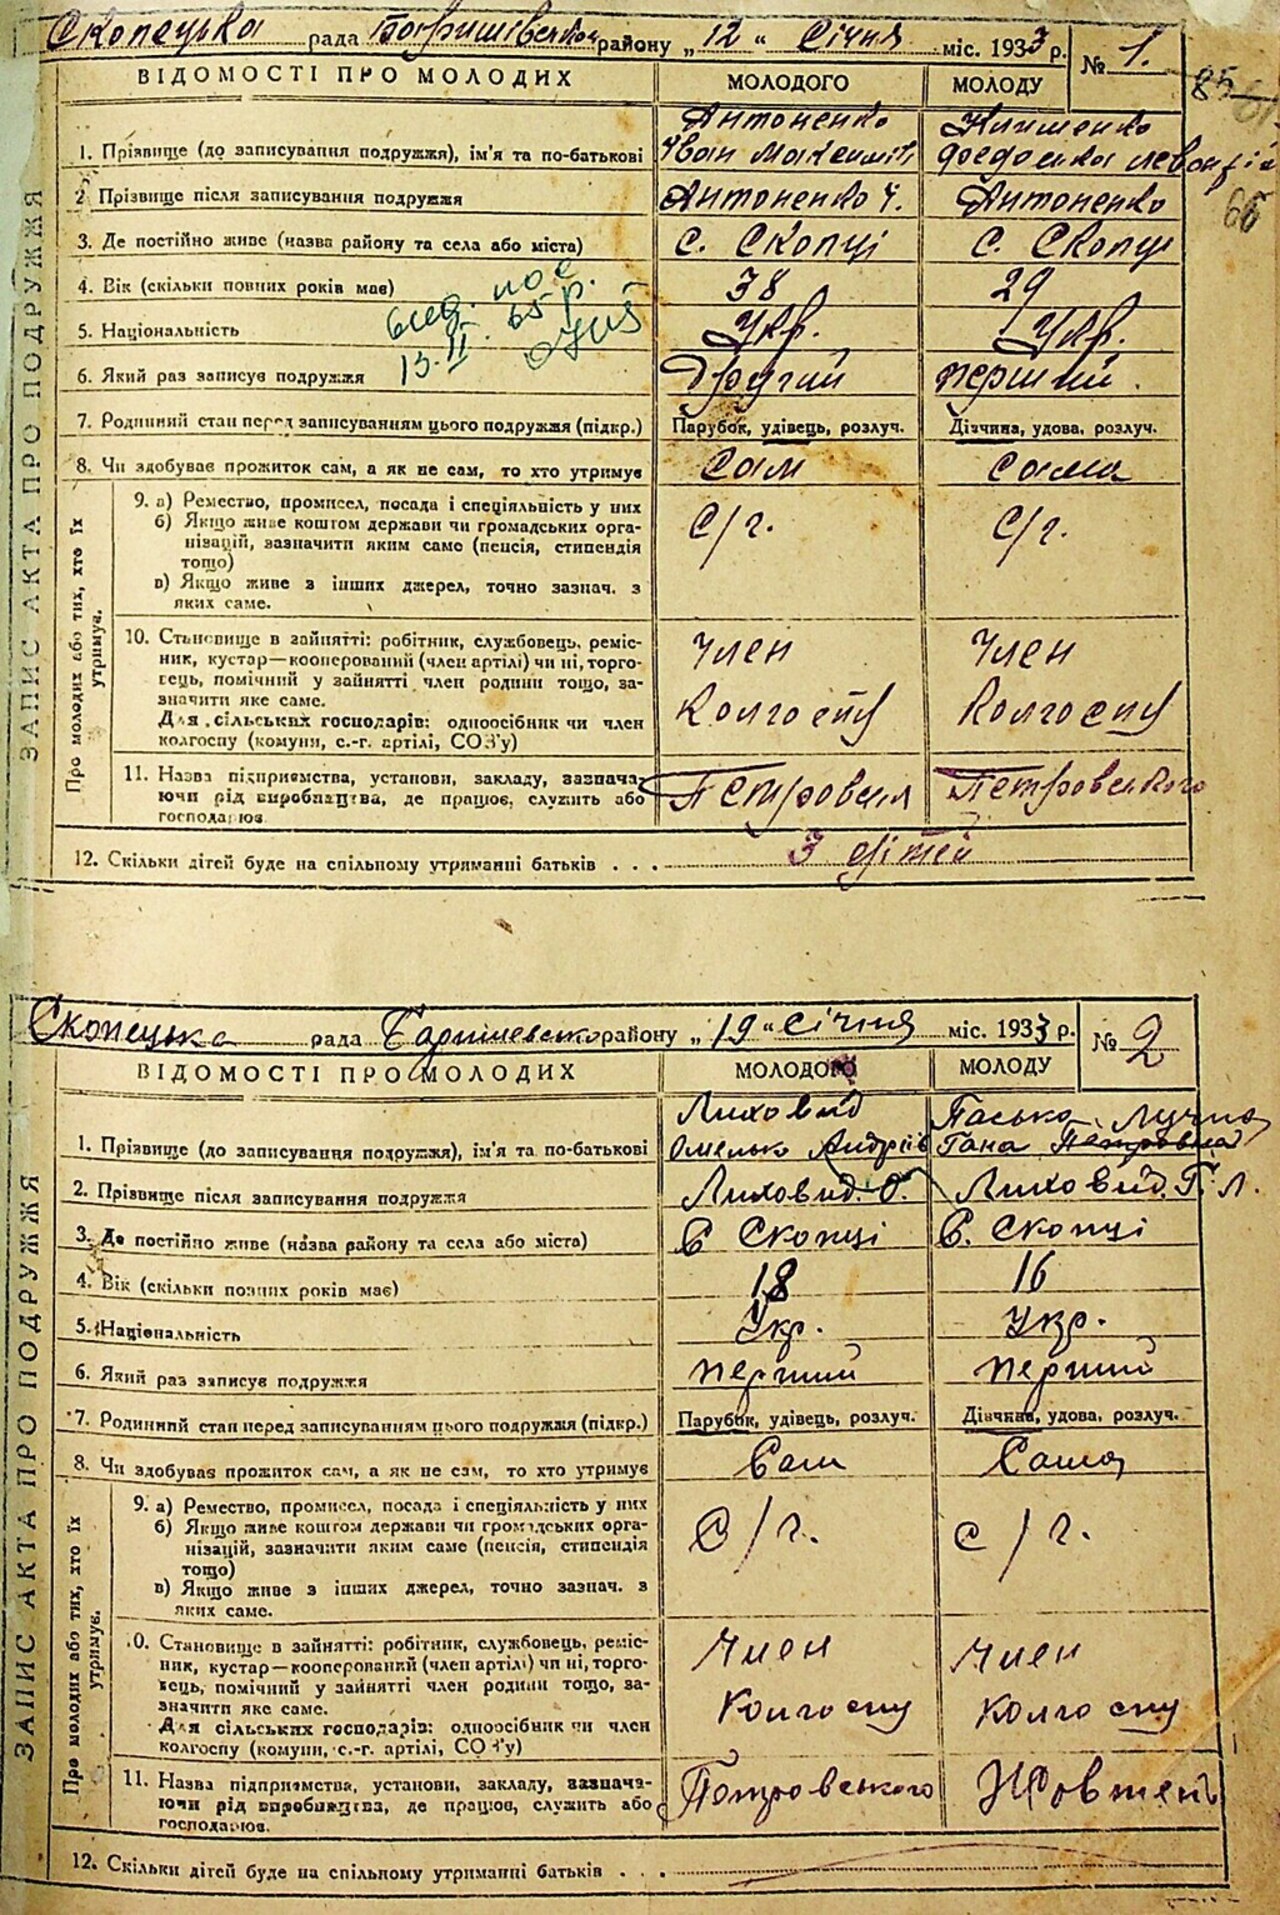 Скопецька рада Баришівського району „12“ Січня міс. 1933 р. № 1.
ВІДОМОСТІ ПРО МОЛОДИХ МОЛОДОГО МОЛОДУ
ЗАПИС АКТА ПРО ПОДРУЖЖЯ
Антоненко Клименко
1. Прізвище (до записування подружжя), ім'я та по-батькові Іван
2. Прізвище після записування подружжя Антоненко І. Антоненко
3. Де постійно живе (назва району та села або міста) с. Скопці с. Скопці
4. Вік (скільки повних років має) 38 29
5. Національність Укр. Укр.
13.II. 65 р.
6. Який раз записує подружжя Другий перший.
7. Родинний стан перед записуванням цього подружжя (підкр.) Парубок, удівець, розлуч. Дівчина, удова, розлуч.
8. Чи здобуває прожиток сам, а як не сам, то хто утримує Сам Сама
Про молодих або тих, хто їх утримує.
9. а) Ремество, промисел, посада і спеціяльність у них С/г. С/г.
б) Якщо живе коштом держави чи громадських орга-
нізацій, зазначити яким саме (пенсія, стипендія
тощо)
в) Якщо живе з інших джерел, точно зазнач. з
яких саме.
10. Становище в зайнятті: робітник, службовець, реміс- Член Член
ник, кустар—кооперований (член артілі) чи ні, торго-
вець, помічний у зайнятті член родини тощо, за-
значити яке саме. Колгоспу Колгоспу
Для сільських господарів: одноосібник чи член
колгоспу (комуни, с.-г. артілі, СОЗ'у)
11. Назва підприємства, установи, закладу, зазнача-
ючи рід виробництва, де працює, служить або Петровського
господарює.
12. Скільки дітей буде на спільному утриманні батьків . . . 3 дітей
85
66
Скопецька рада району „19“ Січня міс. 1933 р. № 2
ВІДОМОСТІ ПРО МОЛОДИХ МОЛОДОГО МОЛОДУ
ЗАПИС АКТА ПРО ПОДРУЖЖЯ
Лиховид Пасько
1. Прізвище (до записування подружжя), ім'я та по-батькові Омелько Андріїв Гана Петровна
2. Прізвище після записування подружжя Лиховид. О. Лиховид. Г. Л.
3. Де постійно живе (назва району та села або міста) С Скопці С. Скопці
4. Вік (скільки повних років має) 18 16
5. Національність Укр. Укр.
6. Який раз записує подружжя перший перший
7. Родинний стан перед записуванням цього подружжя (підкр.) Парубок, удівець, розлуч. Дівчина, удова, розлуч.
8. Чи здобуває прожиток сам, а як не сам, то хто утримує Сам Сама
Про молодих або тих, хто їх утримує.
9. а) Ремество, промисел, посада і спеціяльність у них С/г. С/г.
б) Якщо живе коштом держави чи громадських орга-
нізацій, зазначити яким саме (пенсія, стипендія
тощо)
в) Якщо живе з інших джерел, точно зазнач. з
яких саме.
0. Становище в зайнятті: робітник, службовець, реміс- Член Член
ник, кустар—кооперований (член артілі) чи ні, торго-
вець, помічний у зайнятті член родини тощо, за-
значити яке саме. Колгоспу Колгоспу
Для сільських господарів: одноосібник чи член
колгоспу (комуни, с.-г. артілі, СОЗ'у)
11. Назва підприємства, установи, закладу, зазнача-
ючи рід виробництва, де працює, служить або Петровського Жовтень
господарює.
12. Скільки дітей буде на спільному утриманні батьків . . .